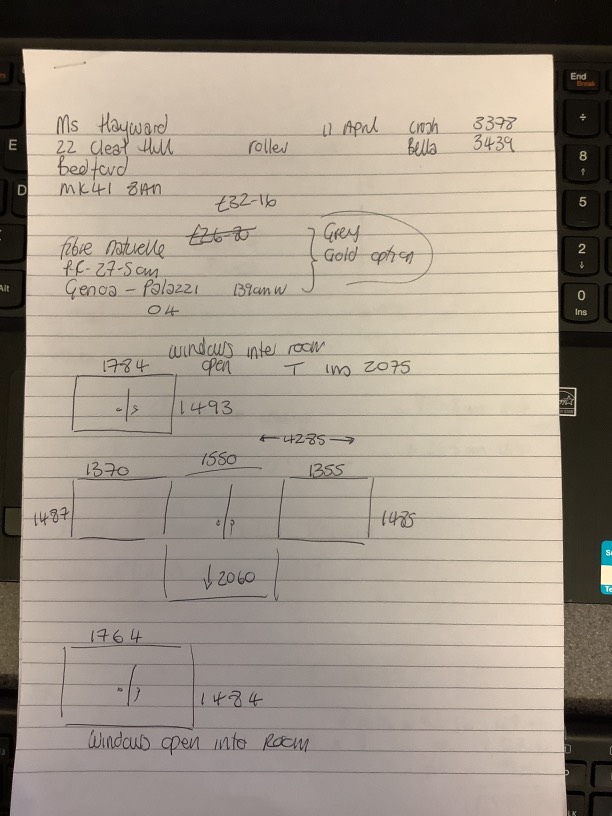 Ms Hayward 11 April Crash 3378
22 Cleat Hill roller Bella 3439
Bedford
MK41 8AN
£32-16
£26-80
fibre naturelle Grey
P.R-27-5cm Gold option
Genoa - Palazzi 139cm w
04
windows into room
open
1784 T ins 2075
1493
4285
1370 1550 1355
1487 1485
↓2060
1764
1484
Windows open into Room
End
Break
÷
8
5
2
0
Ins
E
D
Alt